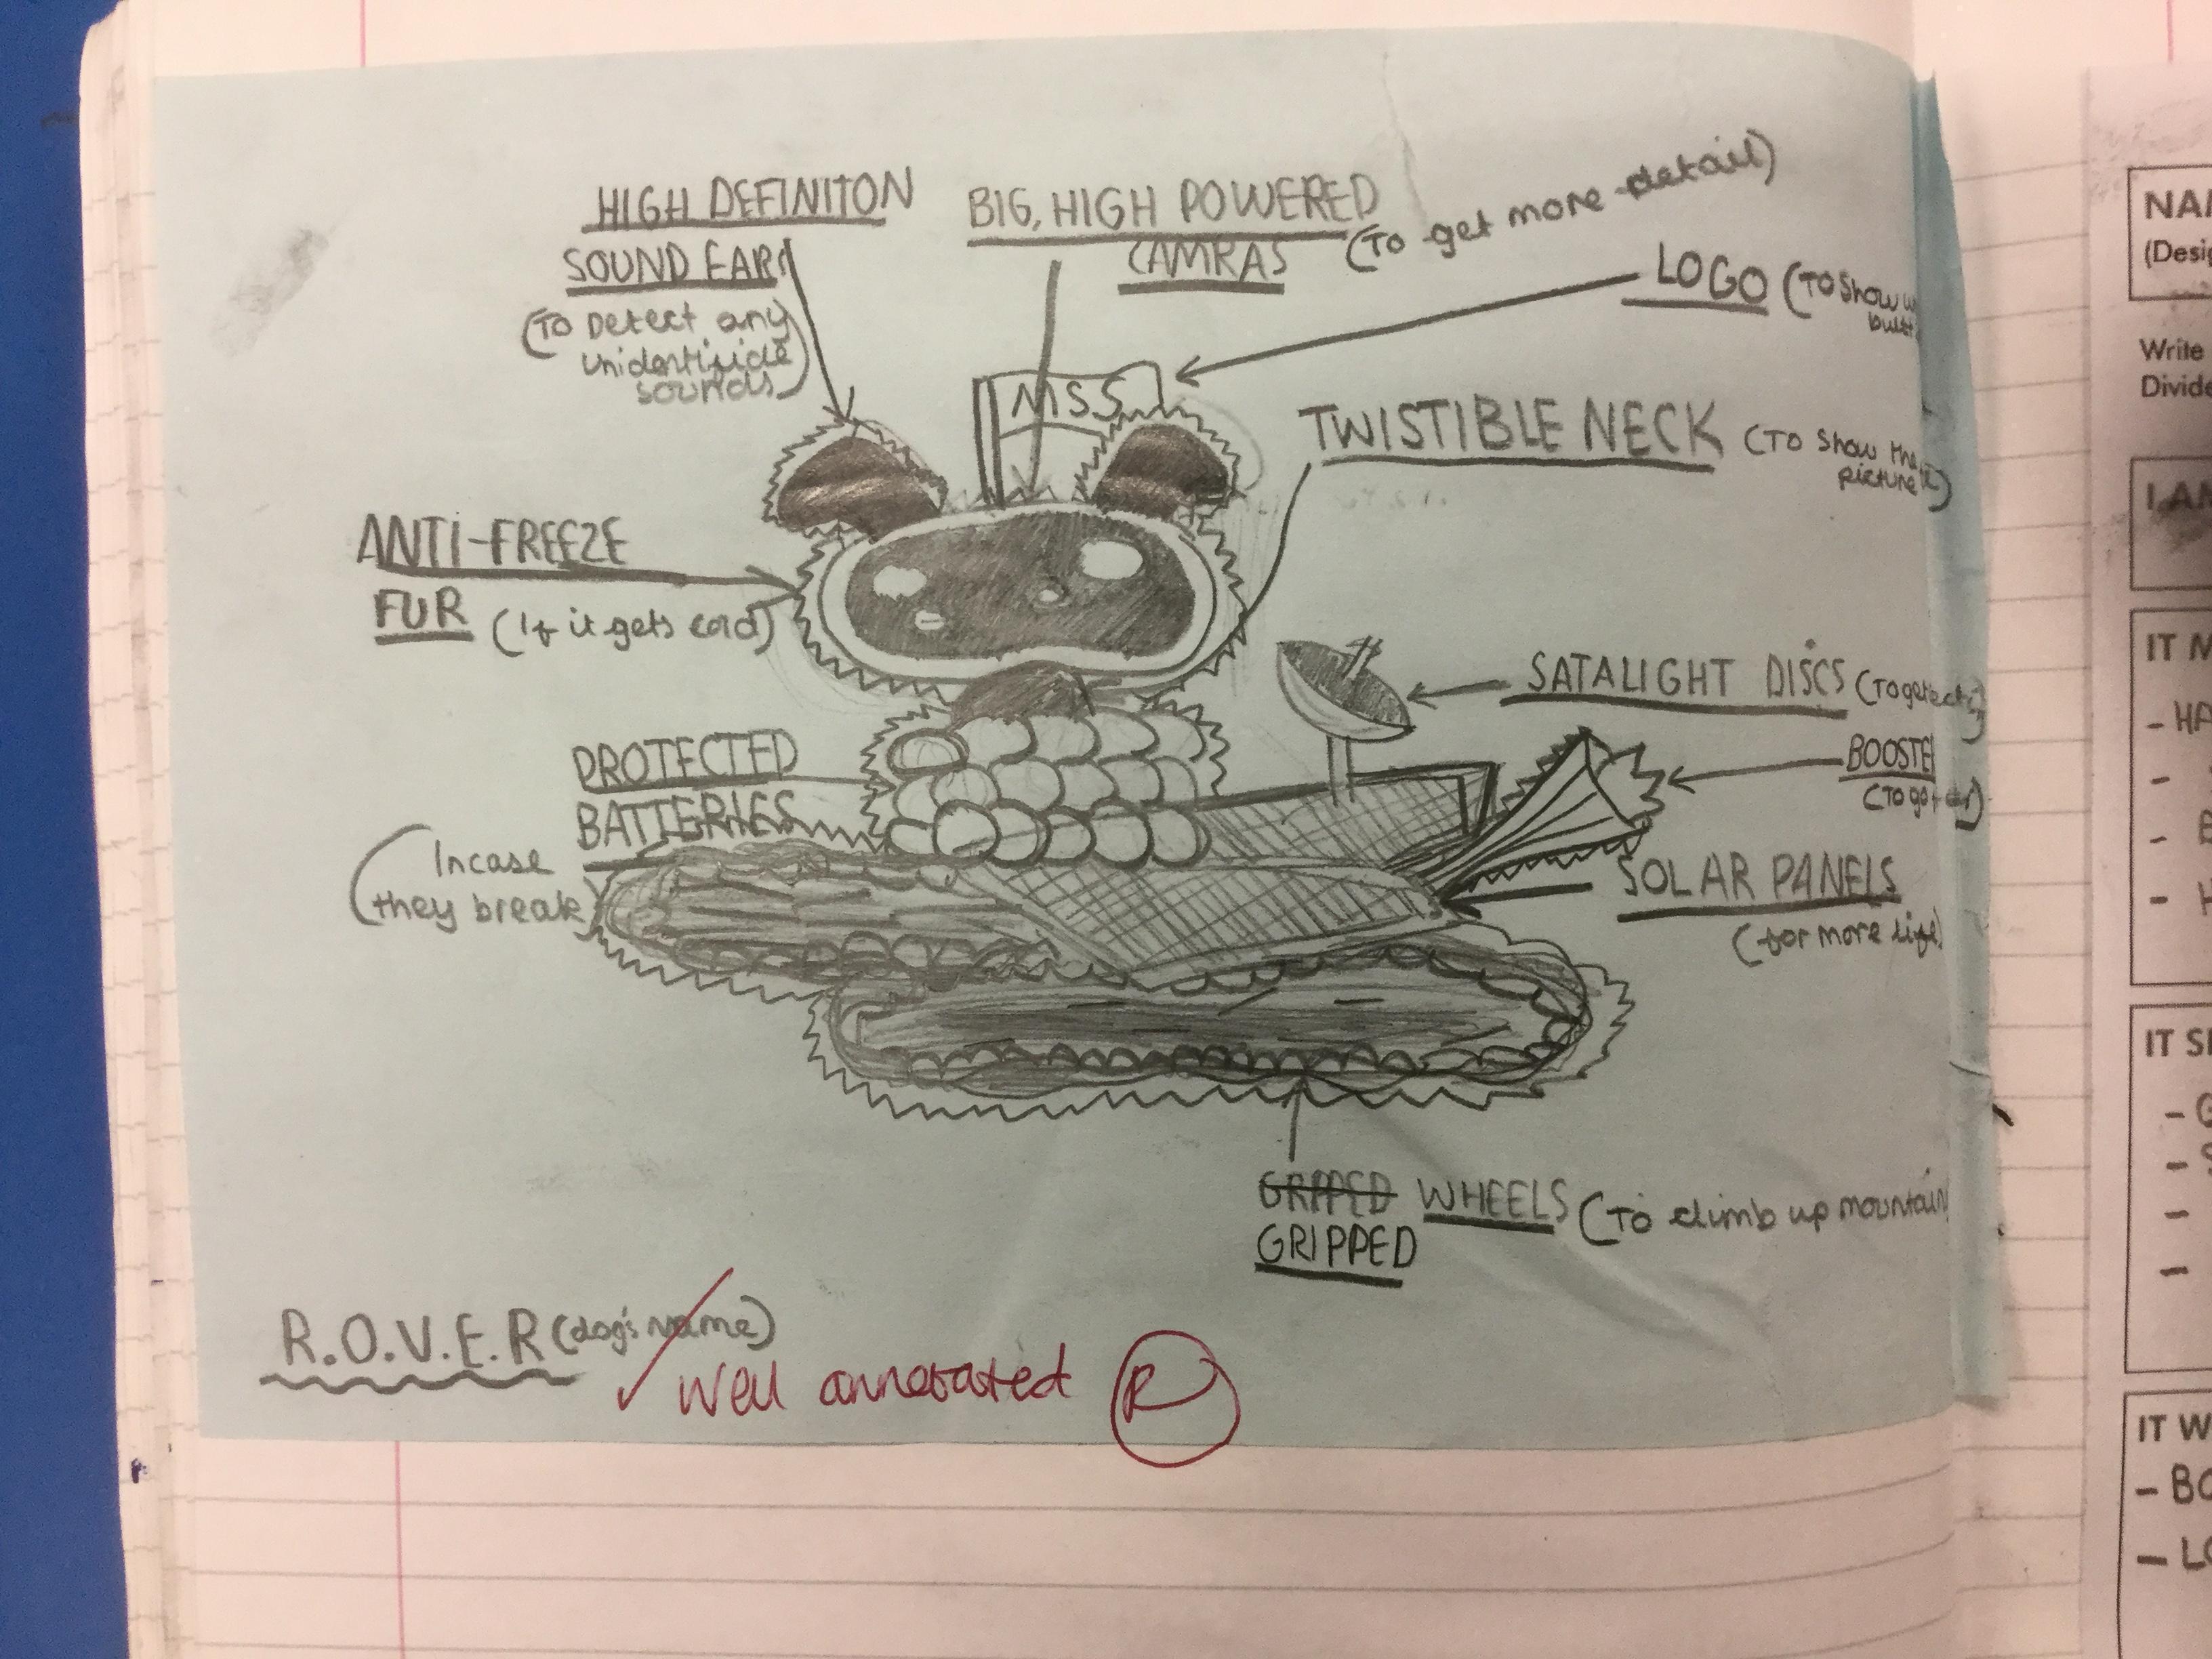 HIGH DEFINITON
SOUND EARS
(To Detect any
unidentificle
sounds)
BIG, HIGH POWERED
CAMRAS
(To get more detail)
LOGO (To show
built
MSS
TWISTIBLE NECK (To show the
picture
ANTI-FREEZE
FUR (If it gets cold)
SATALIGHT DISCS (To
BOOSTE
(To go
PROTECTED
BATTERIES
(Incase
they break)
SOLAR PANELS
(for more life)
GRPPED WHEELS (To climb up mountain
GRIPPED
R.O.V.E.R (dog's name)
Well annotated R
NA
(Desi
Write
Divide
I AM
IT M
- HA
-
- B
- H
IT S
- G
- S
-
-
IT W
- BO
- LO